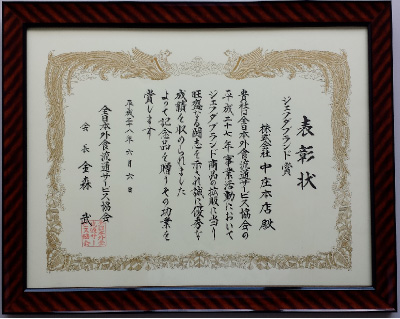 表彰状
ジェフダブランド賞
株式会社 中庄本店 殿
貴社は全日本外食流通サービス協会の
平成二十七年事業活動において
ジェフダブランド商品の拡販に当り
旺盛なる闘志を示され誠に優秀な
成績を収められました
よって記念品を贈りその功業を
賞します
平成二十八年六月六日
全日本外食流通サービス協会
会長 金森 武